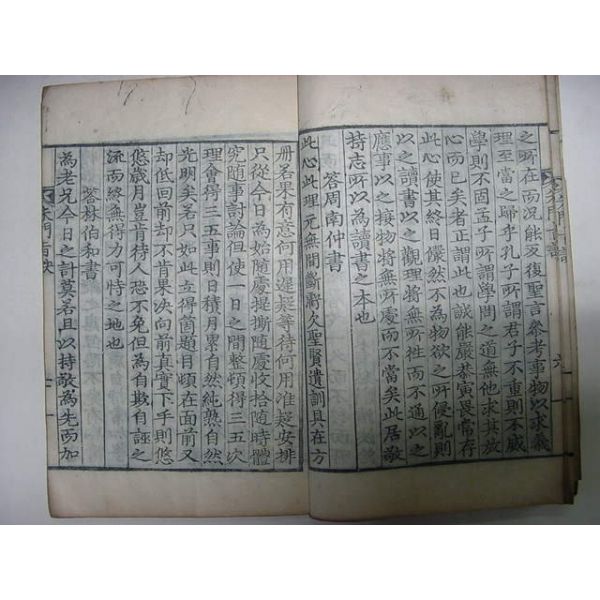 之所在而況能反復聖言參考事物以求義
理至當之歸乎孔子所謂君子不重則不威
學則不固孟子所謂學問之道無他求其放
心而已矣者正謂此也誠能嚴恭寅畏常存
此心使其終日儼然不為物欲之所侵亂則
以之讀書以之觀理將無所往而不通以之
應事以之接物將無所處而不當矣此居敬
持志所以為讀書之本也
答周南仲書
此心此理元無間斷虧欠聖賢遺訓具在方
冊若果有意何用遲疑等待何用准擬安排
只從今日為始隨處提撕隨處收拾隨時體
究隨事討論但使一日之間整頓得三五次
理會得三五事則日積月累自然純熟自然
光明矣若只如此立得箇題目頓在面前又
却低回前却不肯果決向前真實下手則悠
悠歲月豈肯待人恐不免但為自欺自誣之
流而終無得力可恃之地也
答林伯和書
為老兄今日之計莫若且以持敬為先而加